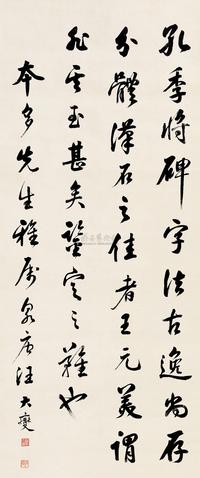 孔季将碑字法古逸尚存
分體漢石之佳者王元美謂
非其至甚矣鑒定之難也
本多先生雅属 泉唐汪大燮